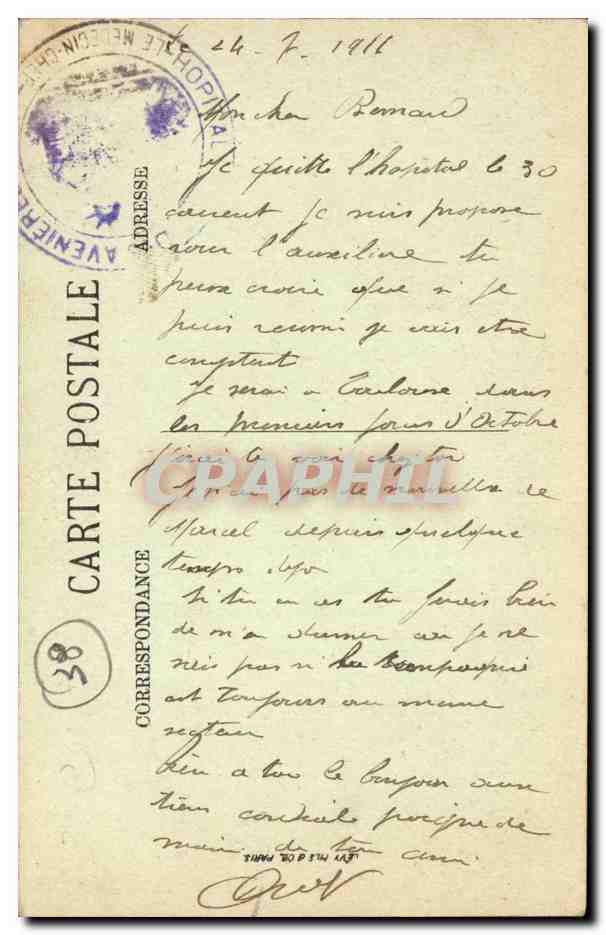 24-7-1911
Mon cher Bernard
Je quitte l'hopital le 30
courant je suis propose
pour l'auxiliere tu
peux croire que si je
puis reussir je vais etre
comptent
Je serai a Toulouse dans
les premiers jours d'Octobre
j'irai te voir chez toi
Je n'ai pas de nouvelles de
Marcel depuis quelque
temps deja
Si tu en as tu ferais bien
de m'en donner car je ne
sais pas si la compagnie
est toujours au meme
secteur
Rien a toi le bonjour aux
tiens cordiale poignee de
main de ton ami
CARTE POSTALE
CORRESPONDANCE
ADRESSE
HOPITAL
LE MEDECIN-CHEF
AVENIERES
38
LEVY FILS & Cie PARIS
CPAPHIL